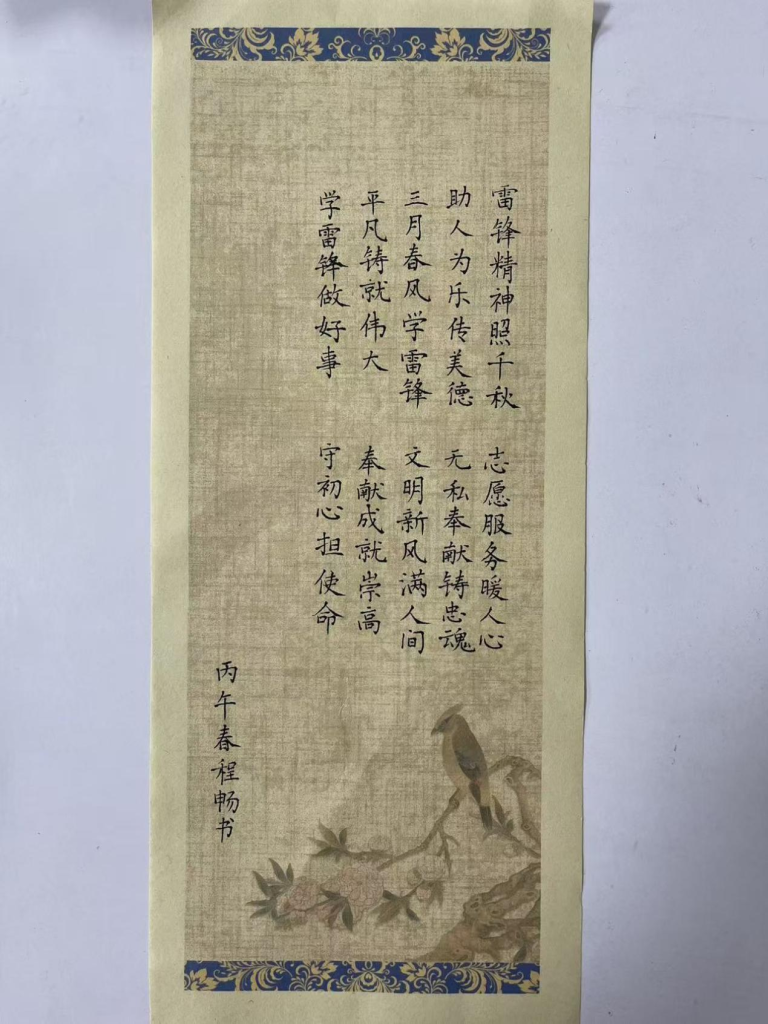 雷锋精神照千秋 志愿服务暖人心
助人为乐传美德 无私奉献铸忠魂
三月春风学雷锋 文明新风满人间
平凡铸就伟大 奉献成就崇高
学雷锋做好事 守初心担使命
丙午春程畅书